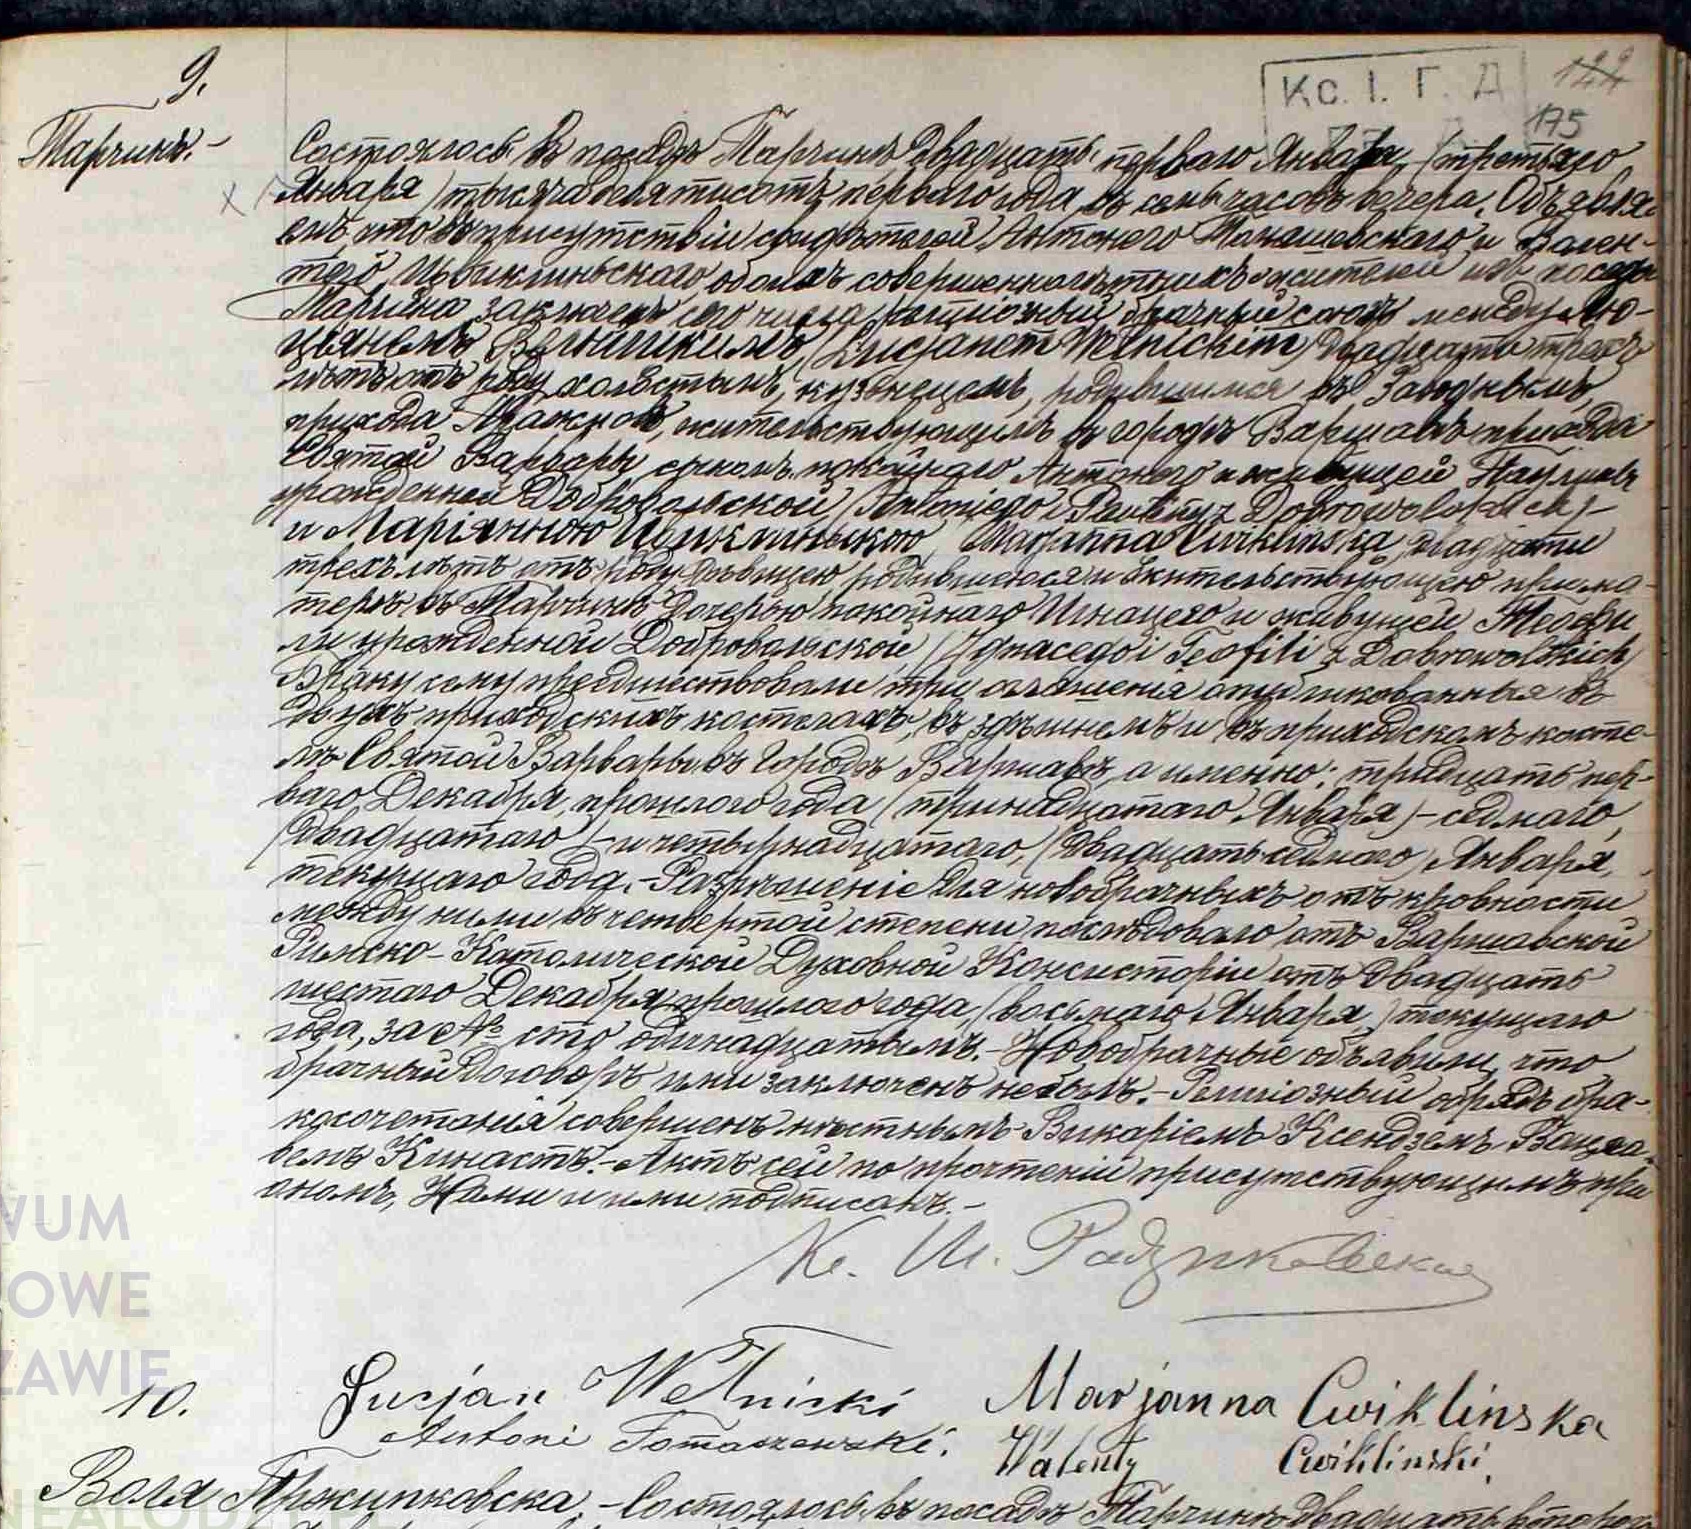 9.
Кс. I. Г. Д
122
175
Тарчинъ.-
Состоялось въ посадѣ Тарчинѣ двадцать перваго Января, (третьяго
Января) тысяча девятисотъ перваго года, въ семь часовъ вечера. Объявля-
емъ, что въ присутствіи свидѣтелей Антонего Томашевскаго и Вален-
тего Цвиклиньскаго обоихъ совершеннолѣтнихъ жителей изъ посада
Тарчина, заключенъ сего числа религіозный брачный союзъ между Лю-
цьяномъ Велницкимъ, (Lucjanem Wełnickim) двадцати трехъ
лѣтъ отъ роду, холостымъ, кузнецомъ, родившимся въ
прихода жительствующимъ въ городѣ Варшавѣ прихода
Святой Варвары, сыномъ покойнаго Антонего и живущей Паулины
урожденной Добровольской (Antoniego i Pauliny z Dobrowolskich)-
и Маріянною Цвиклиньскою, Marjanna Cwiklińska, двадцати
трехъ лѣтъ отъ роду, дѣвицею, родившеюся и жительствующею при ма-
тери въ Тарчинѣ, дочерью покойнаго Игнацего и живущей Теофи-
ли урожденной Добровольской, (Ignacego i Teofili z Dobrowolskich)
Браку сему предшествовали три оглашенія опубликованныя въ
двухъ приходскихъ костелахъ, въ здѣшнемъ и въ приходскомъ косте-
лѣ Святой Варвары въ городѣ Варшавѣ, а именно: тридцать пер-
ваго Декабря, прошлого года (тринадцатаго Января) - седмаго,
(двадцатаго) - и четырнадцатаго, (двадцать седмаго) Января,
текущаго года. - Разрѣшеніе для новобрачныхъ отъ кровности
между ними въ четвертой степени послѣдовало отъ Варшавской
Римско-Католической Духовной Консисторіи отъ двадцать
шестаго Декабря прошлого года, (восьмаго Января) текущаго
года, за № сто одинадцатымъ. - Новобрачные объявили, что
брачный договоръ ими заключенъ небылъ. - Религіозный обрядъ бра-
косочетанія совершенъ мѣстнымъ Викаріемъ Ксендземъ Вацла-
вемъ Кинастъ. - Актъ сей по прочтеніи присутствующимъ при
ономъ, Нами и ими подписанъ. -
Кс. И. Радзиковскій
Lucjan Wełnicki Marjanna Cwiklinska
Antoni Tomaszewski. Walenty Cwikliński.
10.
Воля Пржипковска. - Состоялось въ посадѣ Тарчинѣ двадцать втораго
WUM
OWE
ZAWIE
NEALODZY.PL